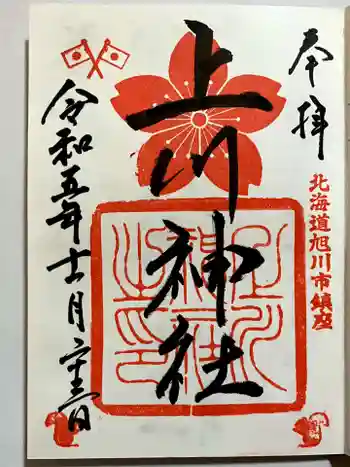 奉拝
北海道旭川市鎮座
上川神社
令和五年十一月二十三日
上川神社之印